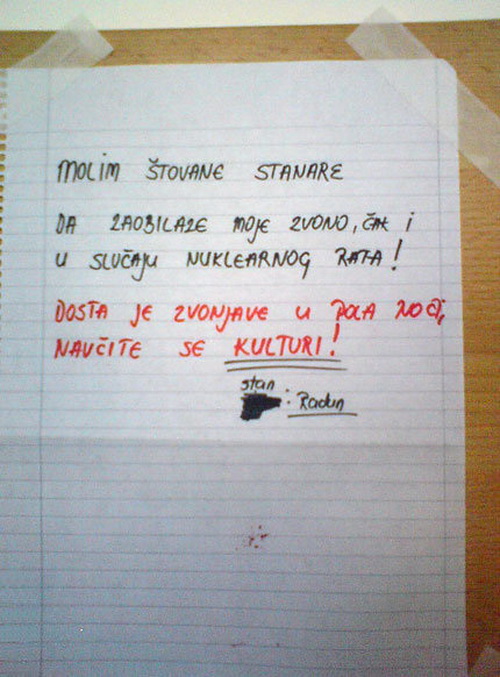 MOLIM ŠTOVANE STANARE
DA ZAOBILAZE MOJE ZVONO, ČAK I
U SLUČAJU NUKLEARNOG RATA!
DOSTA JE ZVONJAVE U POLA NOĆI,
NAVČITE SE KULTURI!
stan :
Radun